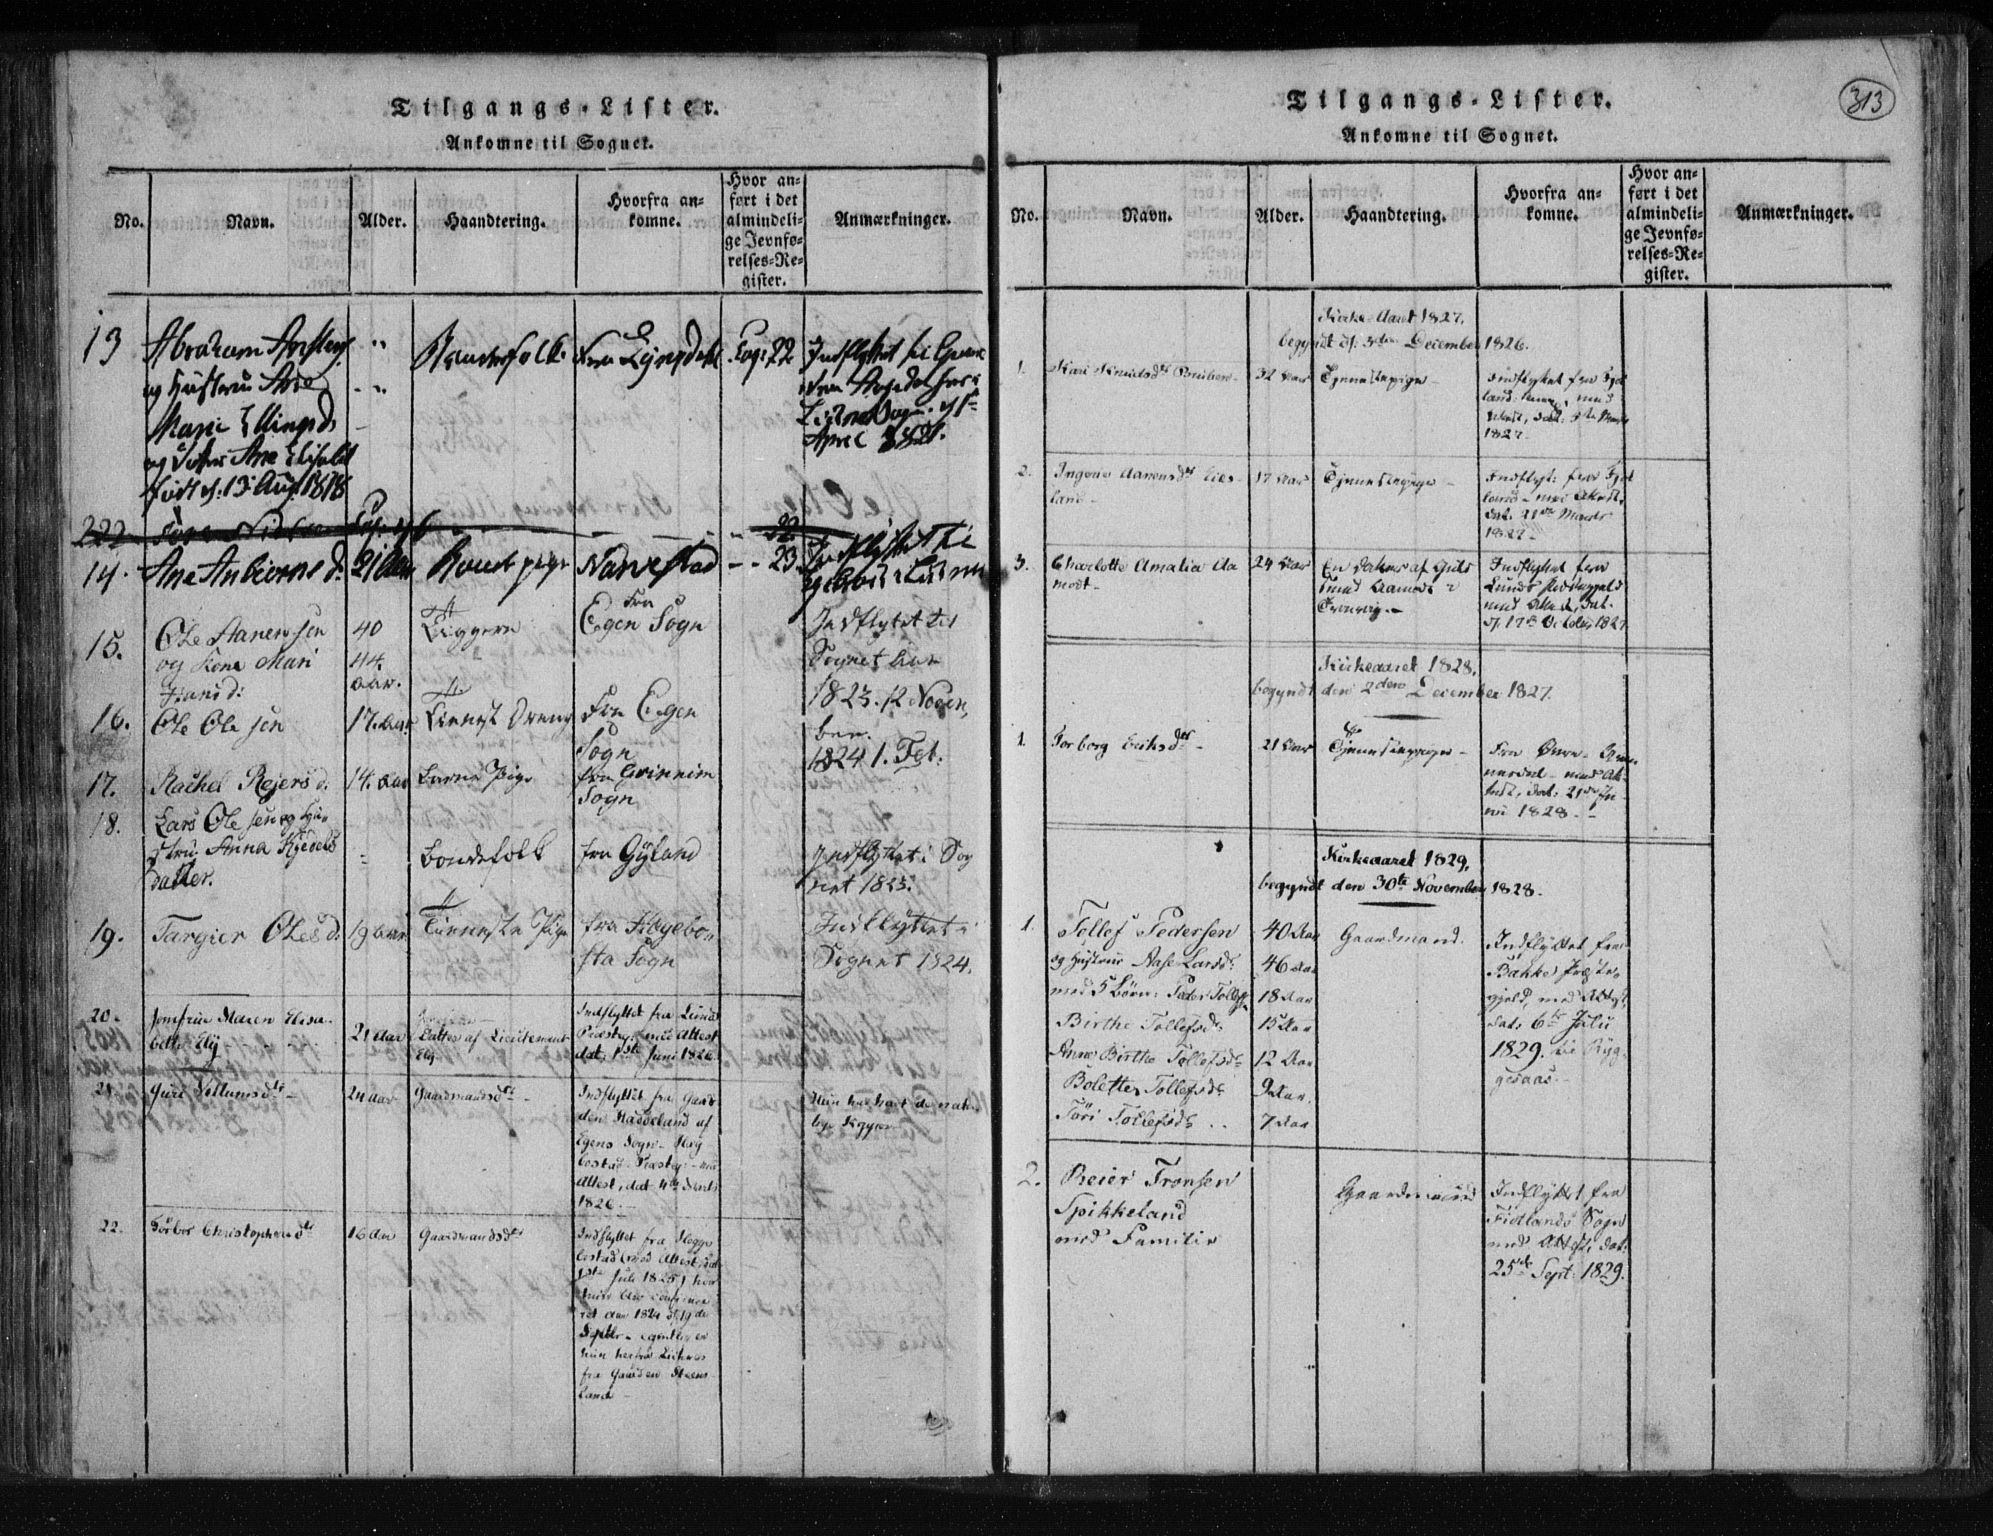 Tilgangs-Lister.
Ankomne til Sognet.
No.
Navn.
Alder.
Haandtering.
Hvorfra an-
komne.
Hvor an-
ført i det
almindeli-
ge Jevnfø-
relses-Re-
gister.
Anmærkninger.
13
Abraham
og Hustrue Ane
Marie Ellingsd
og Ane Elisabet
født d: 13 Aug 1818
Bondefolk
Fra Lyngdal
Pag: 22
Indflyttet til
April
222
22
14.
Ane Anbiørnsd.
21 Aar
Bondepige
Narvestad
- - 23
Indflyttet til
15.
Ole Aanensen
og Kone Mari
Hansd:
40
44.
Aar.
Liggere
Fra
Egen Sogn
Indflytet til
Sognet Aar
1823. 12 Novem,
ber.
16.
Ole Olesen
17. Aar
Tienest Dreng
Fra Egen
Sogn
1824 1. Feb:
17.
Rachel Rejersd:
14. Aar
Barne Pige
fra Qvinnim
Sogn
18.
Lars Olesen og Hu-
stru Anna Kjedels
datter.
Bondefolk
fra Gyland
Indflyttet i Sog
net 1825.
19.
Targier Olesd:
19 Aar
Tieneste Pige
fra Hægebo-
sta Sogn
Indflyttet i
Sognet 1824.
20.
Jomfrue Maren Elisa-
beth Ely
21 Aar
Datter af Lieutenant
Ely
Indflyttet fra Lunds
Præstegj. med Attest
dat. 1ste Juni 1826.
21.
Guri Tollumsdtr -
24 Aar
Gaardmandsdtr -
Indflyttet fra Gaar
den Haddeland af
Egens Sogn - Heg
bostad Præstegj: - med
Attest, dat 4de
1826
Hun har
22.
Torbor Christophersdtr
16 Aar
Gaardmandsdtr
Indflyttet fra Hegge
bostad (med Attest, dat
1ste Juli 1825) hvor
hun blev confirme
ret Aar 1824 d: 19de
Septbr -
hun
fra Gaarden Steens
land
313
Tilgangs-Lister.
Ankomne til Sognet.
No.
Navn.
Alder.
Haandtering.
Hvorfra an-
komne.
Hvor an-
ført i det
almindeli-
ge Jevnfø-
relses-Re-
gister.
Anmærkninger.
Kirke-Aaret 1827,
begyndt d: 3die December 1826.
1.
Kari Knudsdtr
32 Aar
Tjenestepige -
Indflyttet fra Fjot
land med
Attest, dat: 5te Marts
1827.
2.
Ingeborg Aanensdtr Eies-
land -
17 Aar
Tjenestepige -
Indflyt: fra Fjot
land - med Attest,
dat. 21de Marts
1827 -
3.
Charlotte Amalia Aa
modt -
24 Aar
En Datter af Guls
Aamodt i
Indflyttet fra
Lunds Præstegjeld
med Attest, dat.
d: 17de October 1827
Kirkeaaret 1828,
begyndt den 2den December 1827.
1.
Torborg Eriksdtr -
21 Aar
Tjenestepige -
Fra Øvre-
med At-
test, dat: 21de Ju-
ni 1828. -
Kirkeaaret 1829,
begyndt den 30te November 1828.
1.
Tollef Pedersen
og Hustrue Aase Larsdr
med 5 Børn: Peder Tollefs.
Birthe Tollefsdr
Anne Birthe Tollefsdr
Bolette Tollefsdr
Tori Tollefsdr . .
40 Aar
46 Aar
18 Aar
15 Aar
12 Aar
9 Aar.
7 Aar
Gaardmand.
Indflyttet fra
Bakke Præste-
gjeld, med Attest,
dat: 6te Juli
1829. til Ryg-
gesaas.
2.
Reier Tronsen
Spikkeland
med Familie
Gaardmand
Indflyttet fra
Fiotlands Sogn
med Attest, dat:
25de Sept: 1829.